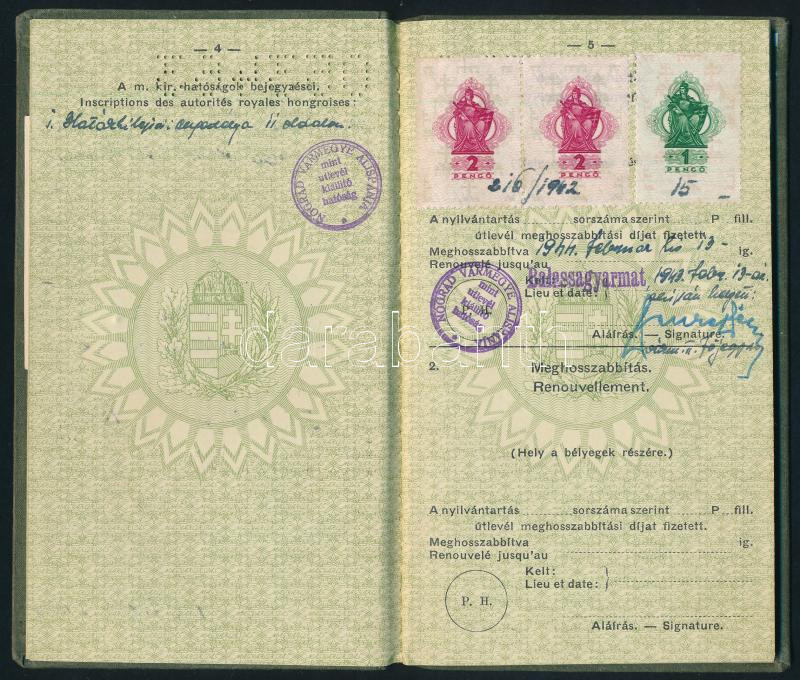 — 4 —
A m. kir. hatóságok bejegyzései.
Inscriptions des autorités royales hongroises:
II oldalon.
NÓGRÁD VÁRMEGYE ALISPÁNJA
mint
útlevél
kiállító
hatóság
— 5 —
2 2 1
PENGŐ PENGŐ PENGŐ
216/1942 15 –
A nyilvántartás sorszáma szerint P fill.
útlevél meghosszabbítási díjat fizetett.
Meghosszabbítva 1944. február hó 13- ig.
Renouvelé jusqu'au
Kelt: Balassagyarmat 1942 febr. 13-án
Lieu et date:
NÓGRÁD VÁRMEGYE ALISPÁNJA
mint
útlevél
kiállító
hatóság
Aláírás. — Signature.
darabanth
2. Meghosszabbítás.
Renouvellement.
(Hely a bélyegek részére.)
A nyilvántartás sorszáma szerint P fill.
útlevél meghosszabbítási díjat fizetett.
Meghosszabbítva ig.
Renouvelé jusqu'au
Kelt:
Lieu et date:
P. H.
Aláírás. — Signature.